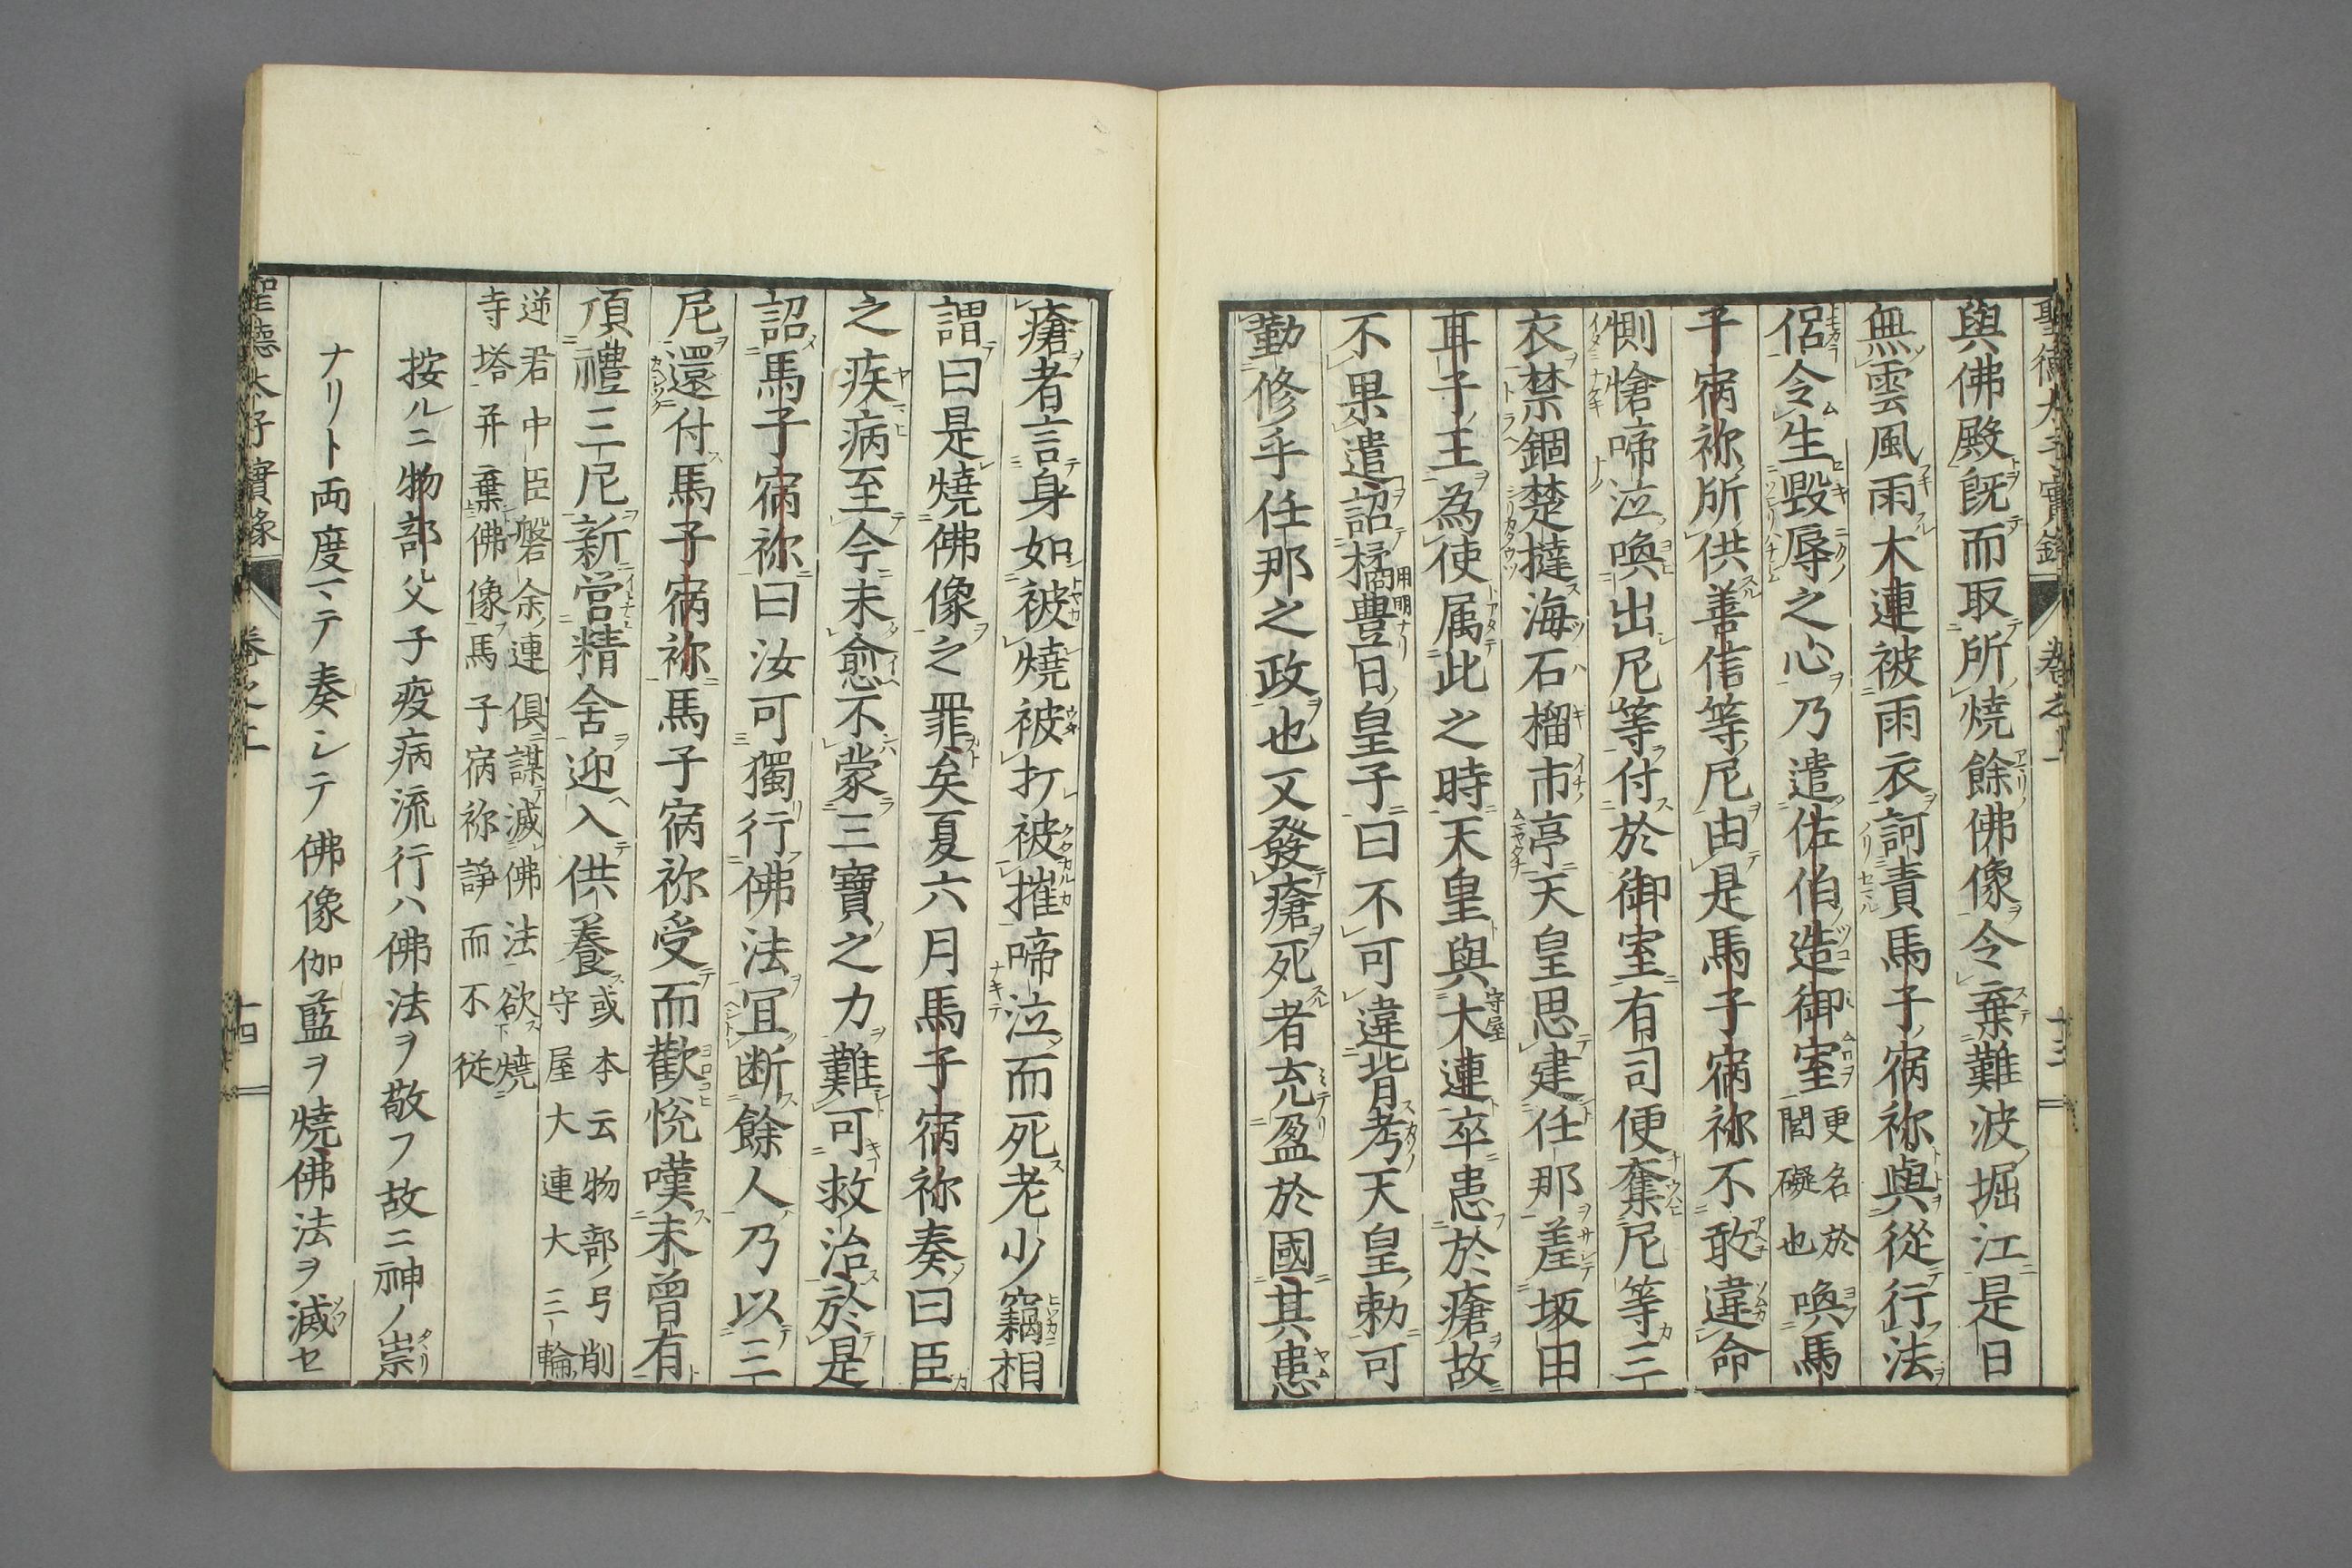 與佛殿既而取所燒餘佛像令棄難波堀江是日
無雲風雨大連被雨衣訶責馬子宿祢與從行法
侶令生毀辱之心乃遣佐伯造御室更名於閭礙也喚馬
子宿祢所供善信等尼由是馬子宿祢不敢違命
惻愴啼泣喚出尼等付於御室有司便奪尼等三
衣禁錮楚撻海石榴市亭天皇思建任那差坂田
耳子王為使属此之時天皇與大連卒患於瘡故
不果遣詔橘豊日皇子曰不可違背考天皇勅可
勤修乎任那之政也又發瘡死者充盈於國其患
瘡者言身如被燒被打被摧啼泣而死老少竊相
謂曰是燒佛像之罪矣夏六月馬子宿祢奏曰臣
之疾病至今未愈不蒙三寶之力難可救治於是
詔馬子宿祢曰汝可獨行佛法宜断餘人乃以三
尼還付馬子宿祢馬子宿祢受而歡恱嘆未曾有
頂禮三尼新営精舎迎入供養或本云物部弓削守屋大連大三輪
逆君中臣磐余連倶謀滅佛法欲燒
寺塔并棄佛像馬子宿祢諍而不従
按ルニ物部父子疫病流行ハ佛法ヲ敬フ故ニ神ノ崇
ナリト両度マテ奏シテ佛像伽藍ヲ燒佛法ヲ滅セ